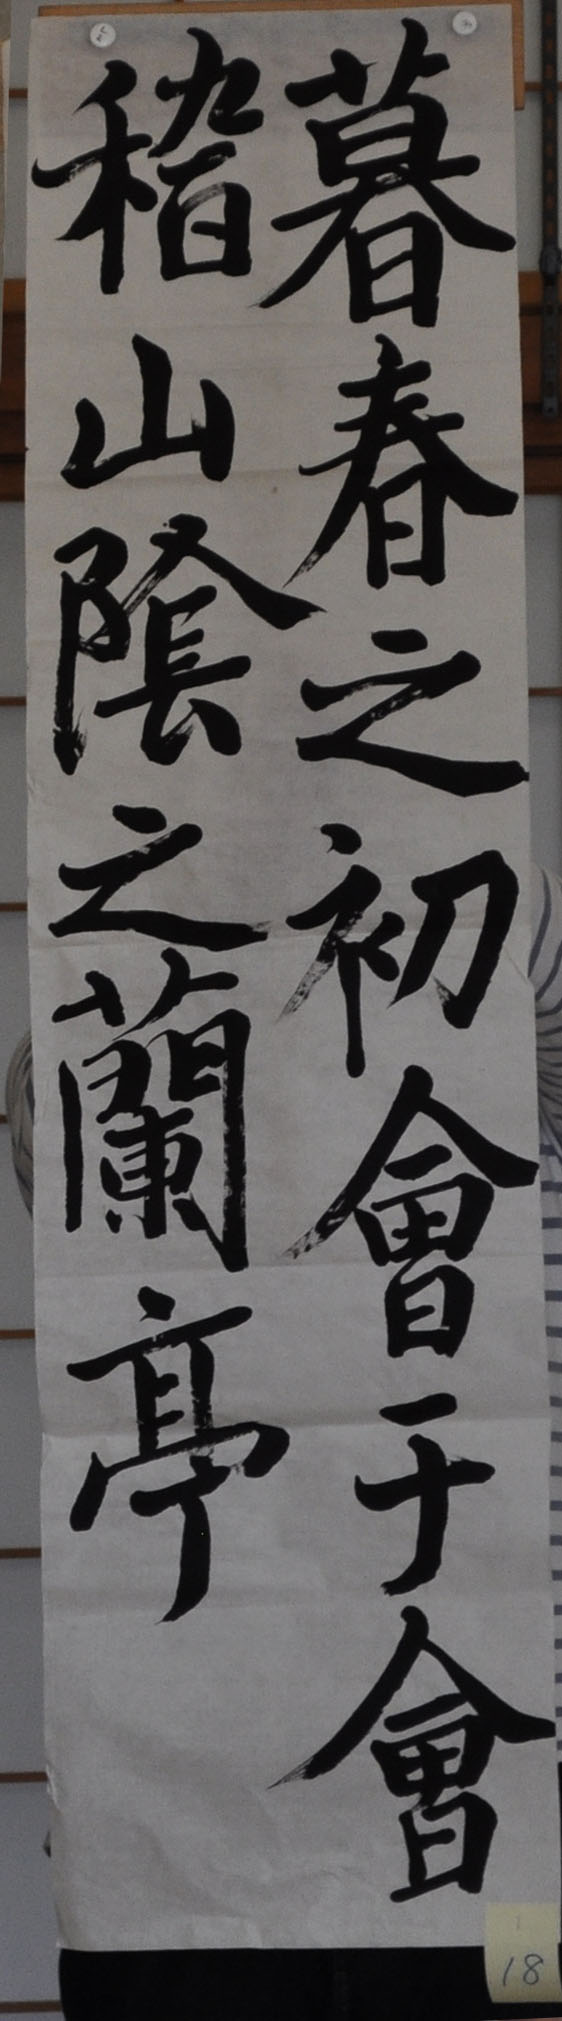 暮春之初會于會
稽山陰之蘭亭
18